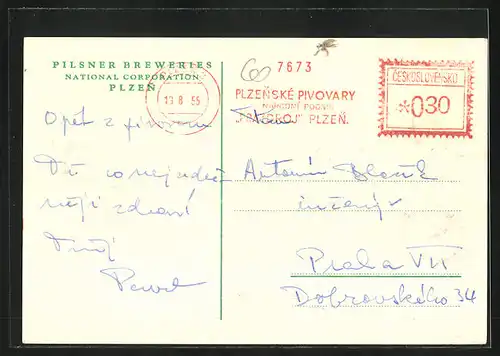 PILSNER BREWERIES
NATIONAL CORPORATION
PLZEŇ
13 8 55
7673
PLZEŇSKÉ PIVOVARY
NÁRODNÍ PODNIK
PLZEŇ.
ČESKOSLOVENSKO
*030
Opět z
Ti co nejvíce
zdraví
Tvůj
Pavel
Pan
Antonín
inženýr
Praha VII
Dobrovského 34